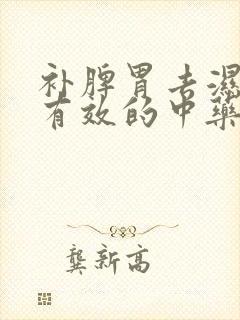 补脾胃去湿
有效的中药
龚新高